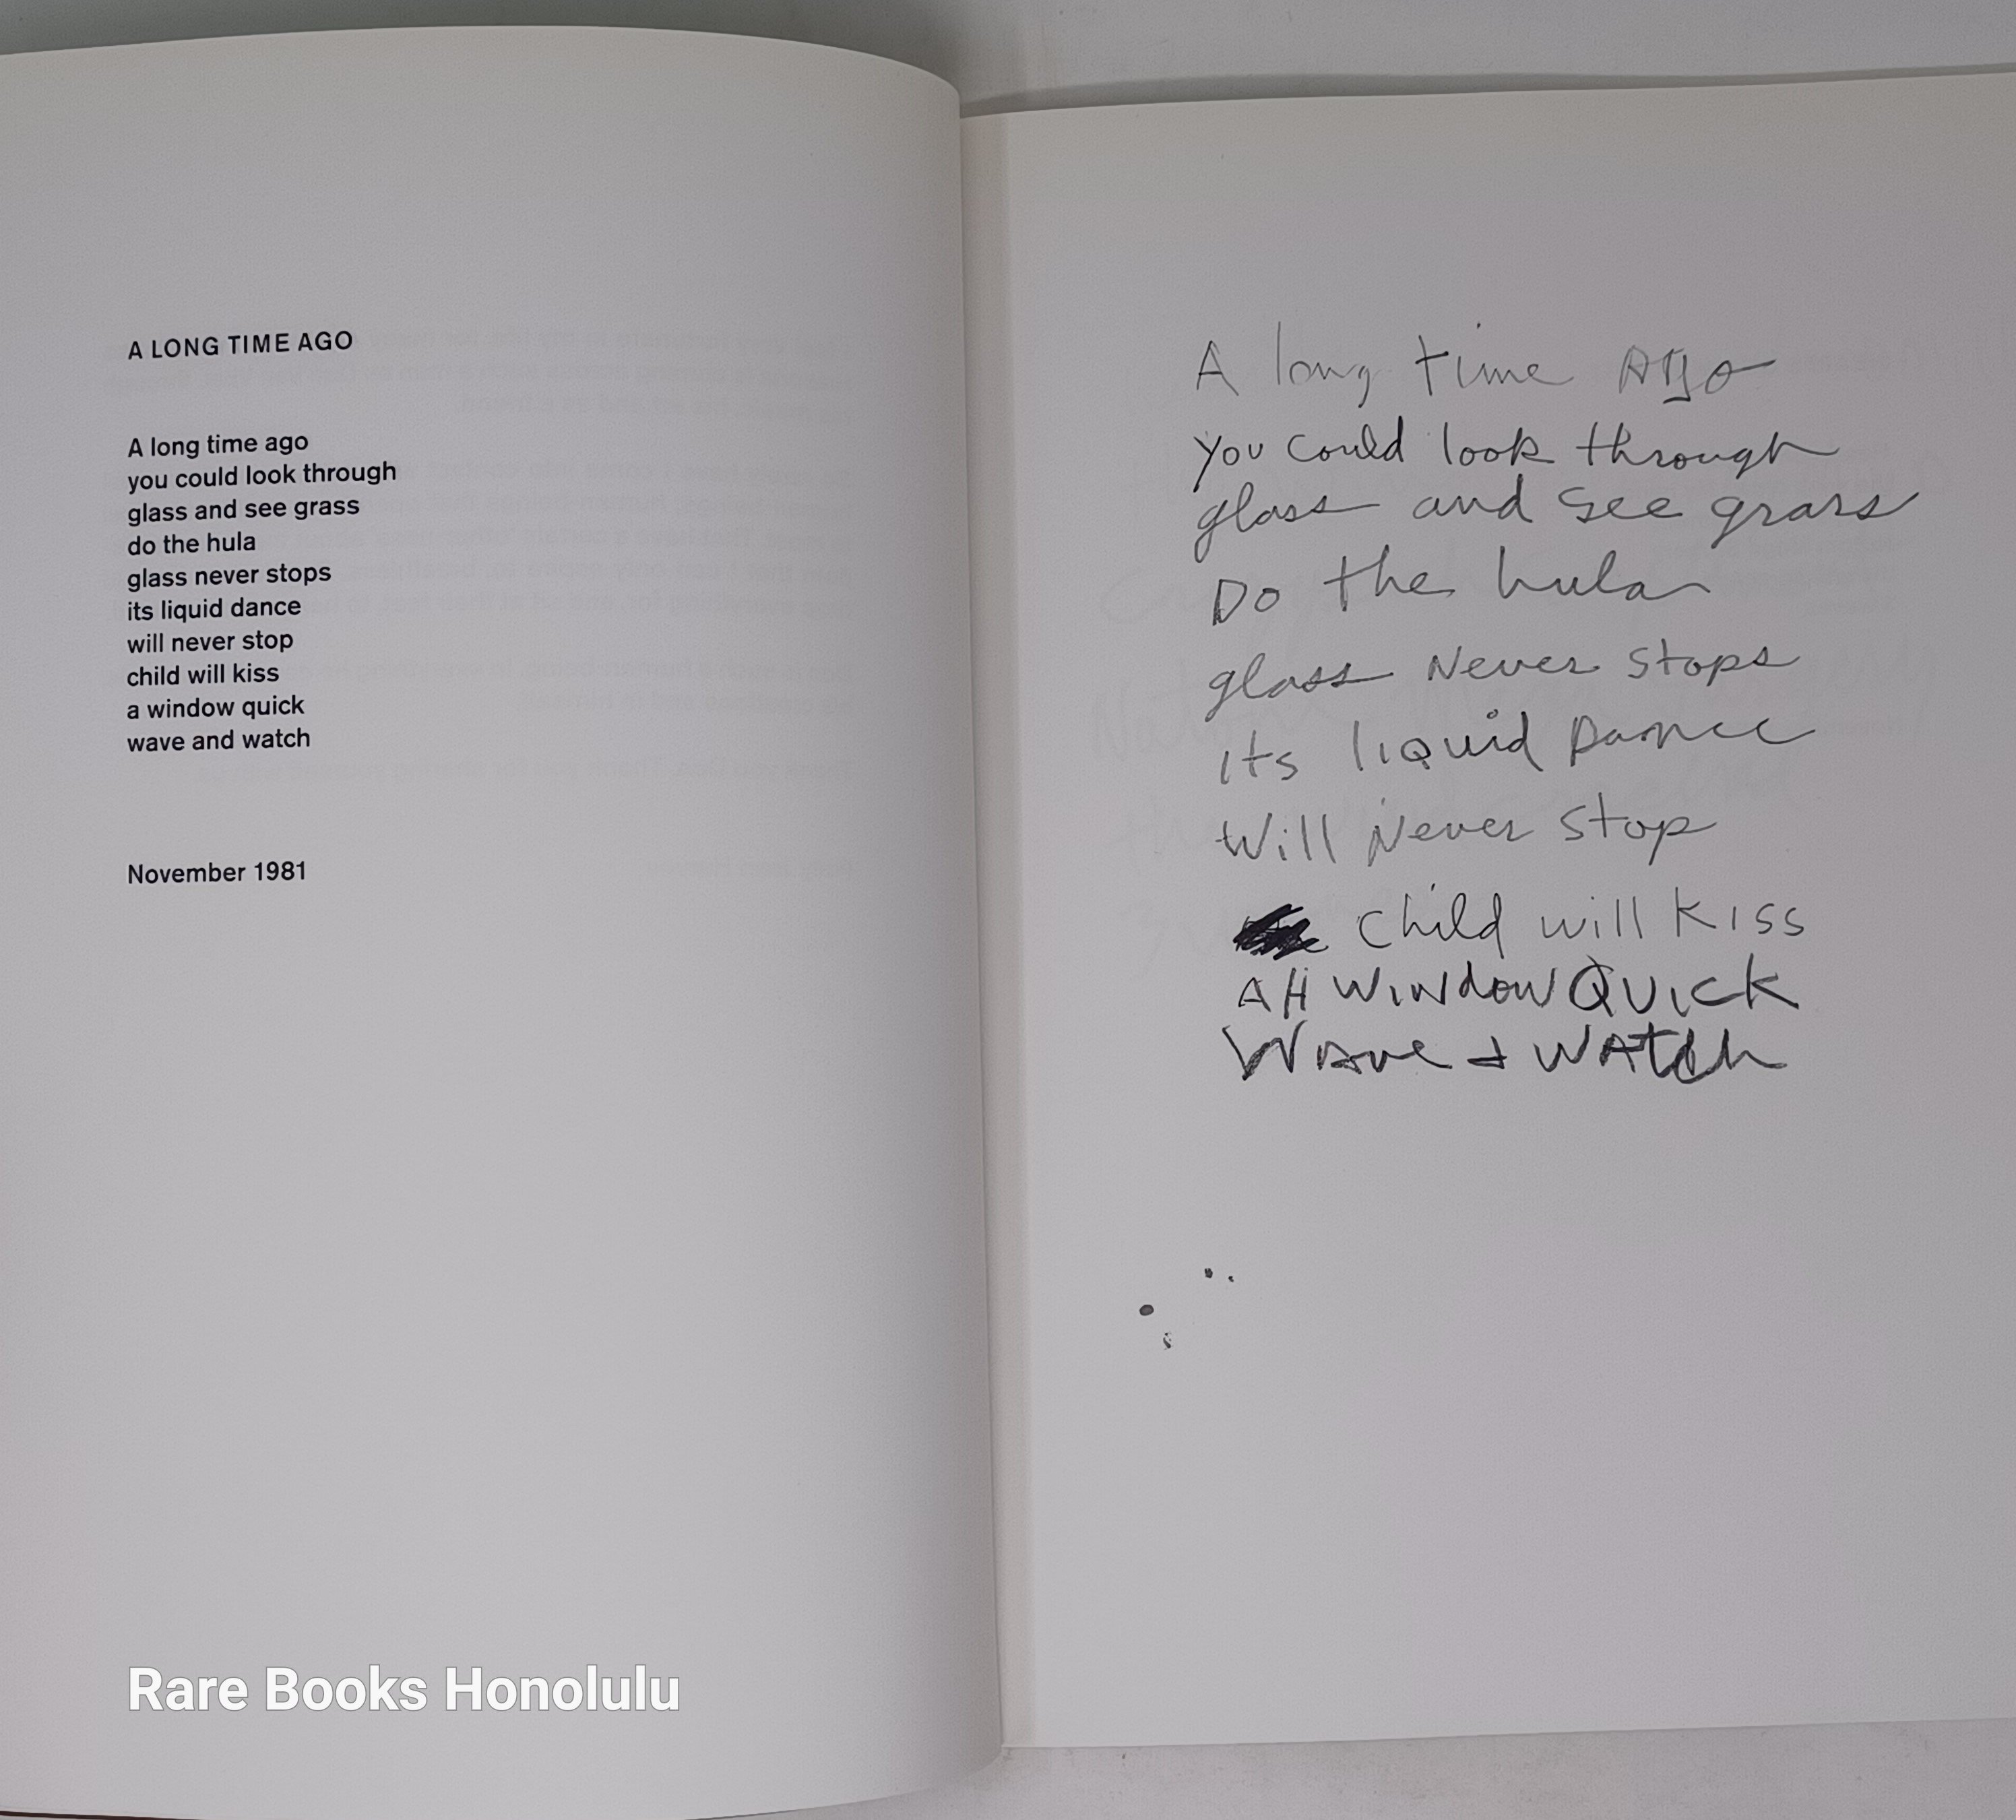 A LONG TIME AGO
A long time ago
you could look through
glass and see grass
do the hula
glass never stops
its liquid dance
will never stop
child will kiss
a window quick
wave and watch
November 1981
Rare Books Honolulu
A long time Ago
you could look through
glass and see grass
Do the hula
glass Never stops
its liquid Dance
Will Never stop
child will kiss
AH WiNdoW QUICK
Wave + WAtch